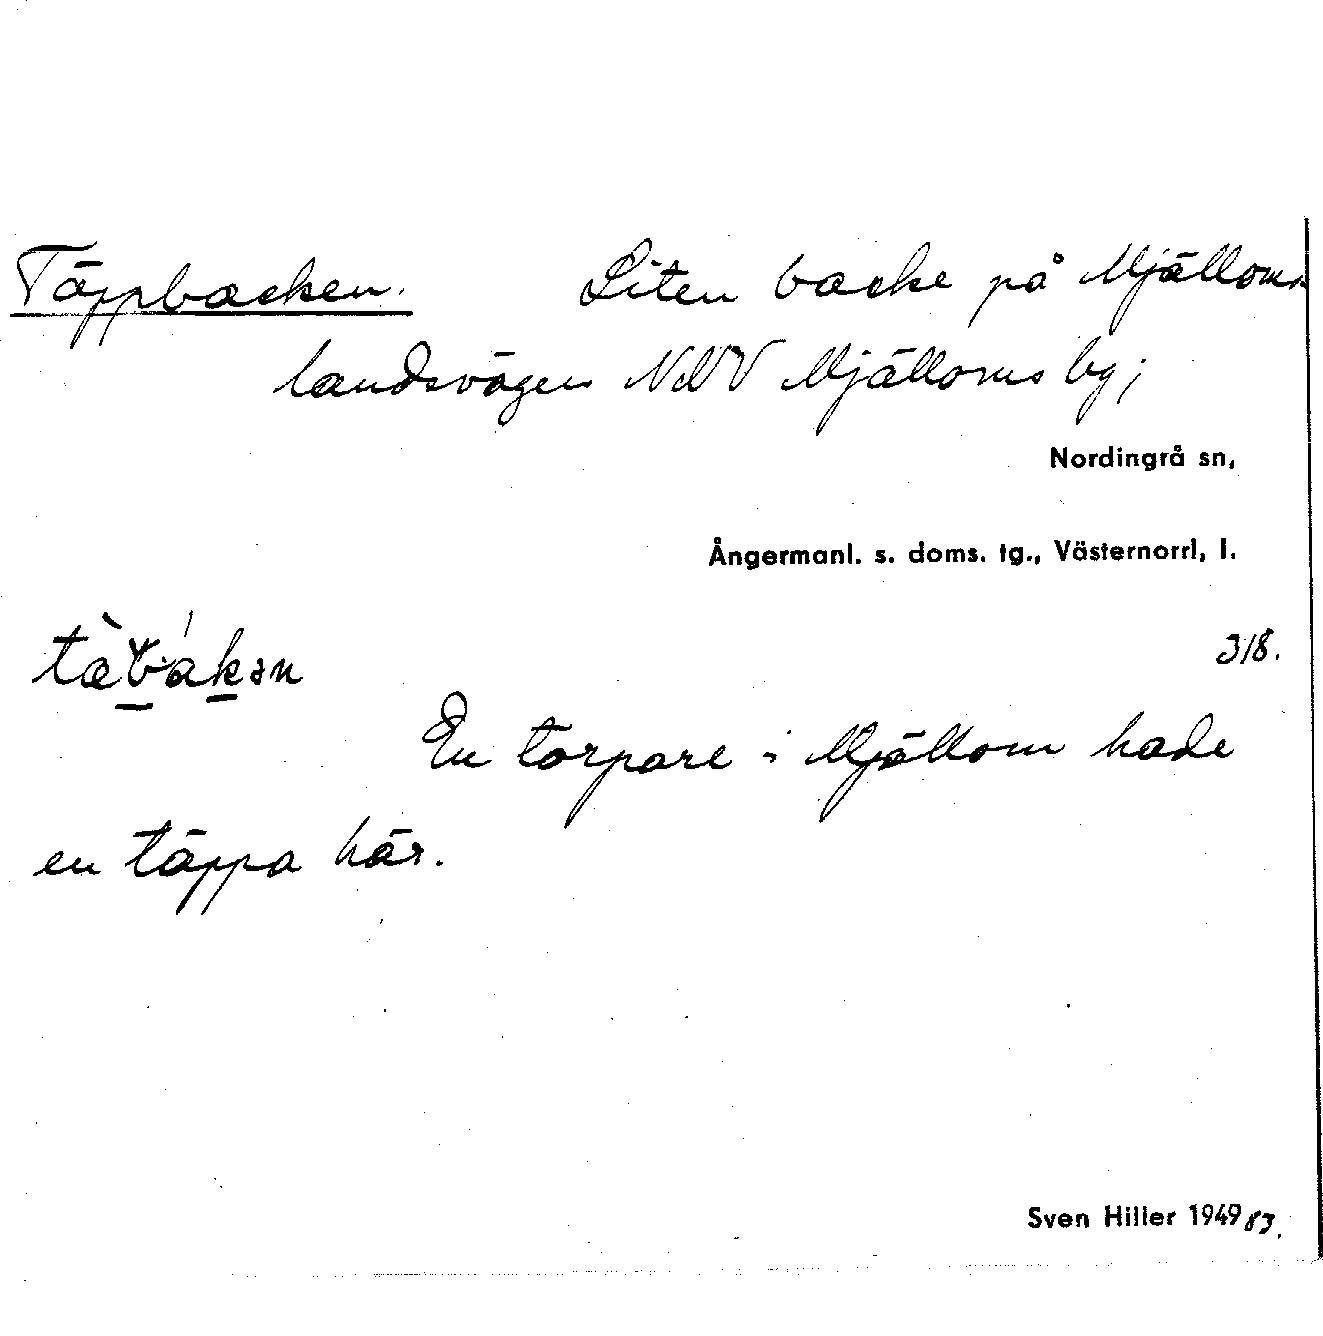 Täppbacken. Liten backe på Mjälloms
landsvägen NNV Mjälloms by;
Nordingrå sn,
Ångermanl. s. doms. tg., Västernorrl, l.
318.
En torpare i Mjällom hade
en täppa här.
Sven Hiller 1949 83.